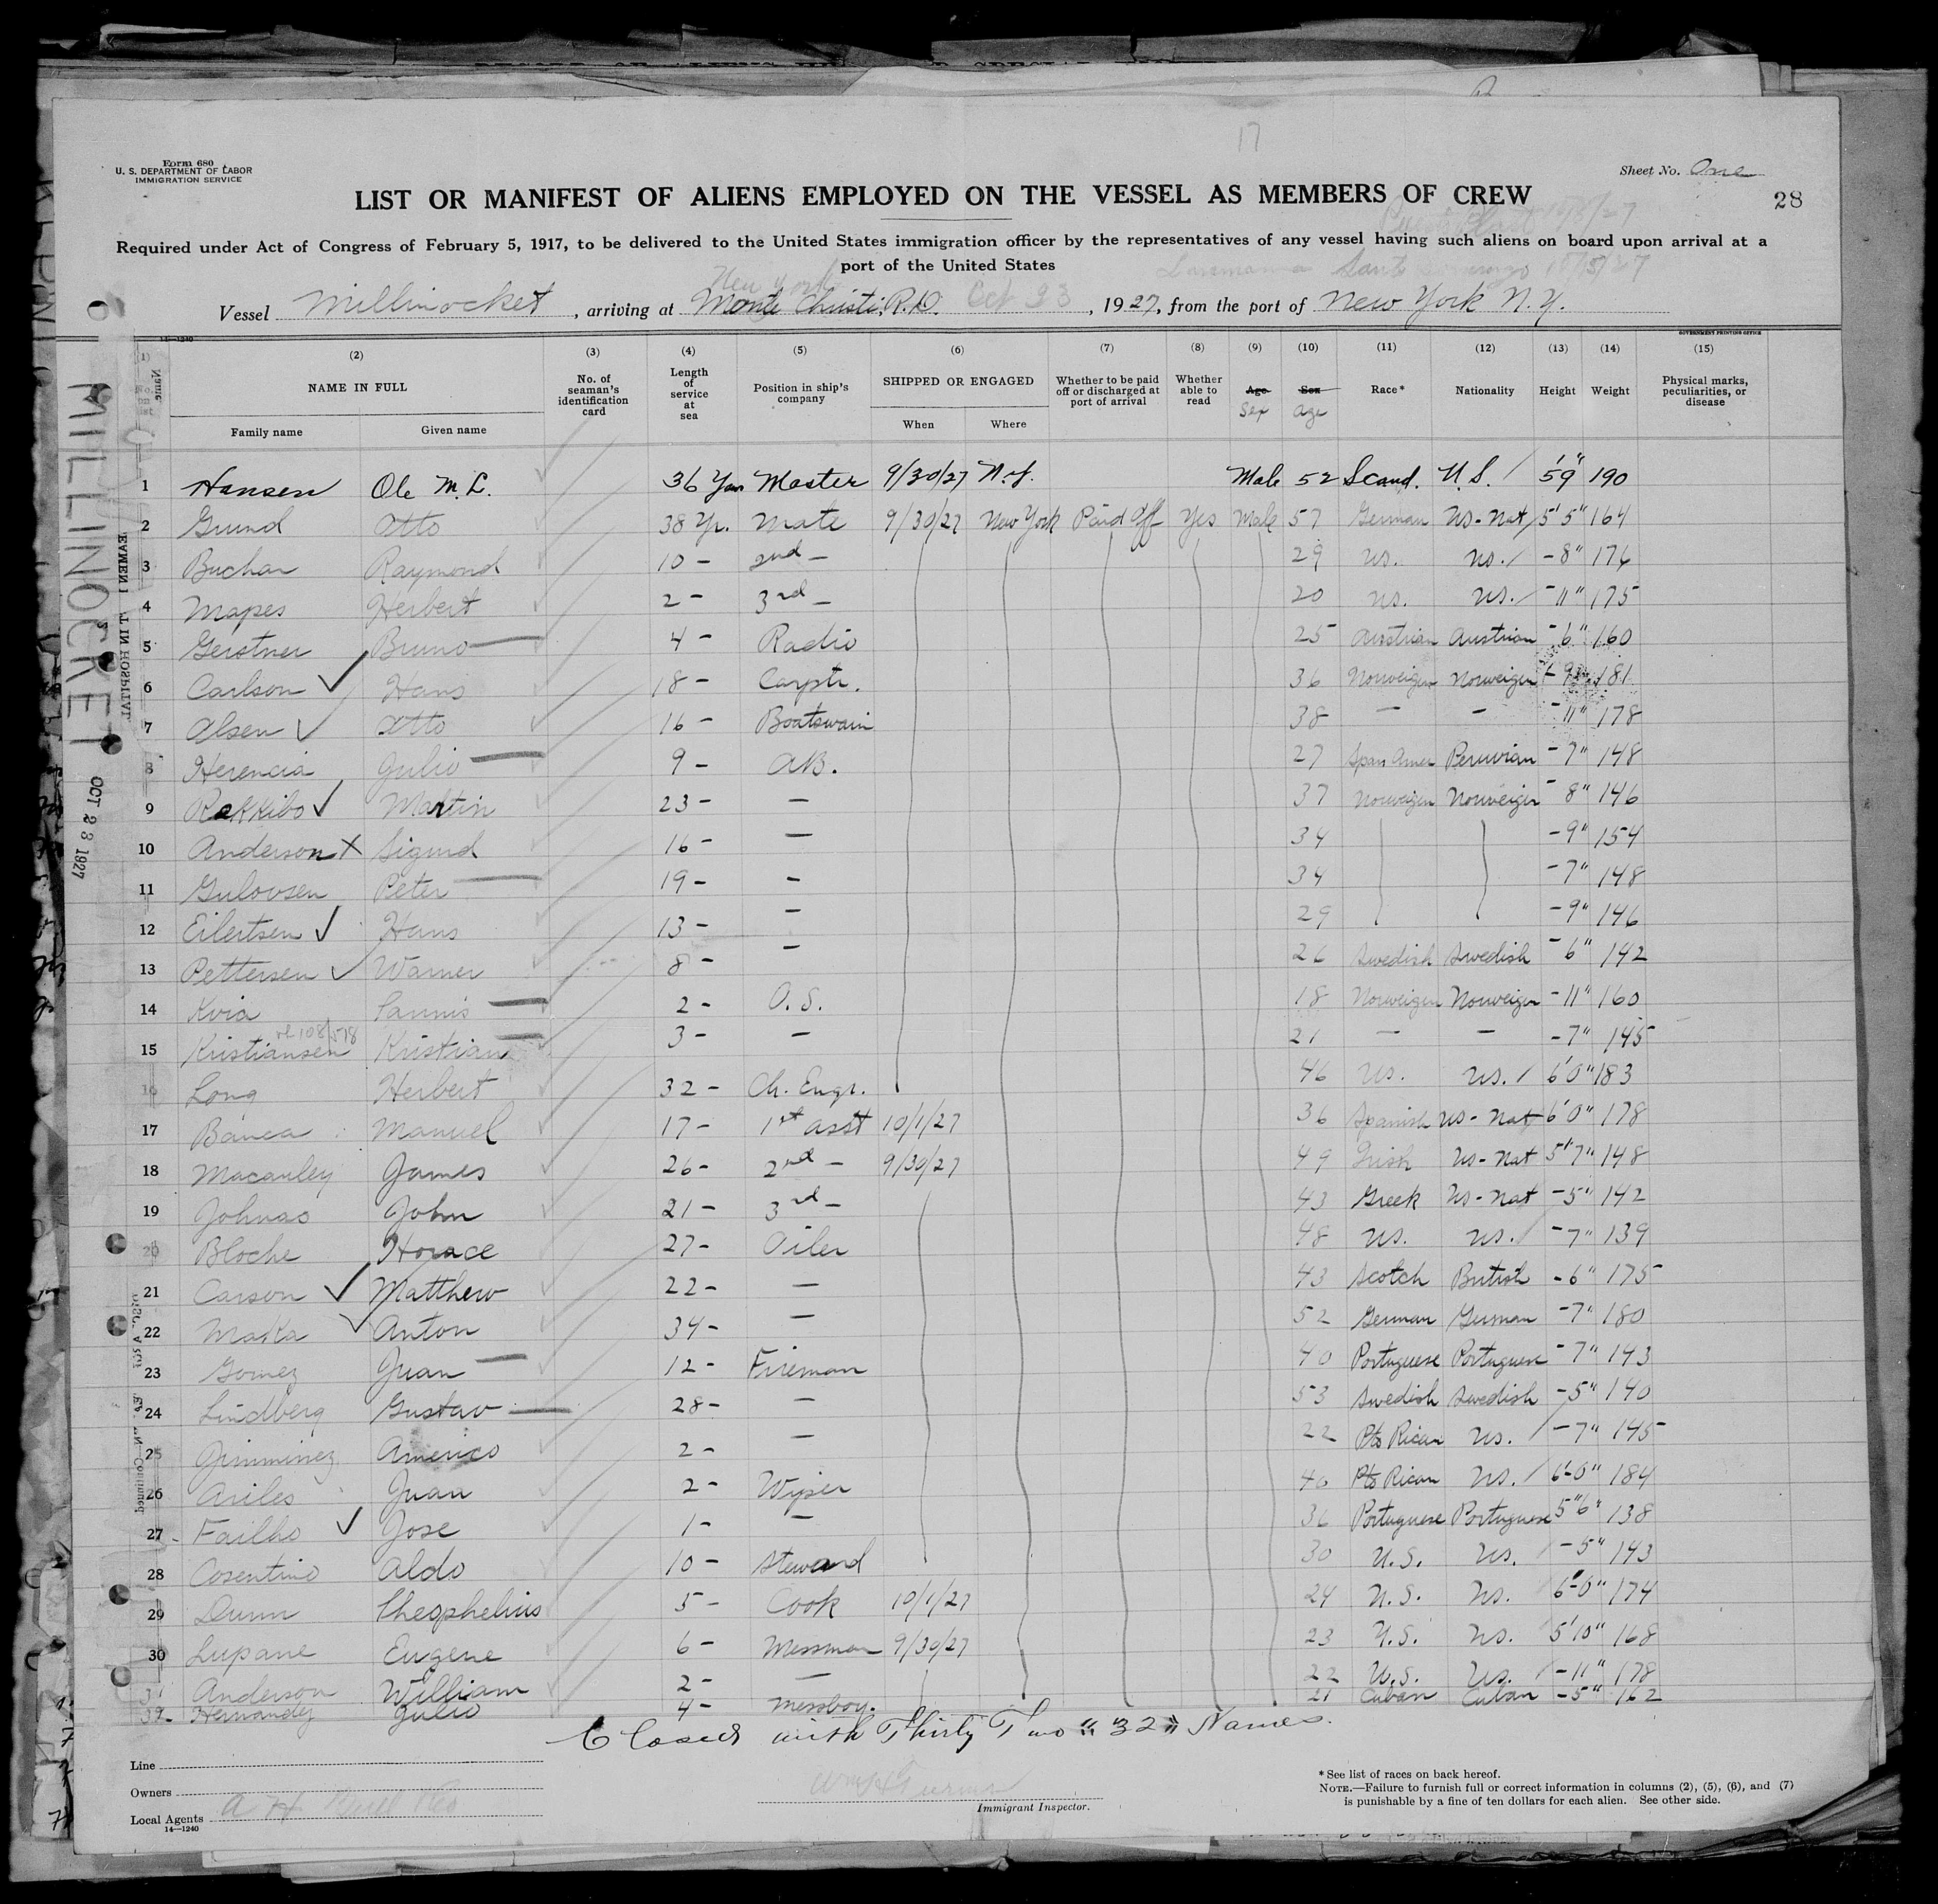 17
Form 680
U. S. DEPARTMENT OF LABOR
IMMIGRATION SERVICE
Sheet No. One
LIST OR MANIFEST OF ALIENS EMPLOYED ON THE VESSEL AS MEMBERS OF CREW
28
Required under Act of Congress of February 5, 1917, to be delivered to the United States immigration officer by the representatives of any vessel having such aliens on board upon arrival at a
port of the United States
New York
Vessel Millinocket, arriving at Monte Christi, R.D. Oct 23, 1927, from the port of New York N.Y.
14—1240 GOVERNMENT PRINTING OFFICE
(1) (2) (3) (4) (5) (6) (7) (8) (9) (10) (11) (12) (13) (14) (15)
No. on list NAME IN FULL Family name Given name No. of seaman's identification card Length of service at sea Position in ship's company SHIPPED OR ENGAGED When Where Whether to be paid off or discharged at port of arrival Whether able to read Age Sex Sex Age Race* Nationality Height Weight Physical marks, peculiarities, or disease
1 Hansen Ole M. L. 36 Yrs Master 9/30/27 N.Y. Male 52 Scand. U.S. 5'9" 190
2 Grund Otto 38 Yr. Mate 9/30/27 New York Paid Off Yes Male 57 German US-Nat 5'5" 164
3 Buchar Raymond 10 - 2nd - 29 US. US. -8" 176
4 Mapes Herbert 2 - 3rd - 20 US. US. -11" 175
5 Gerstner Bruno 4 - Radio 25 Austrian Austrian -6" 160
6 Carlson Hans 18 - Carptr. 36 Norweigen Norweigen -9" 181
7 Olsen Otto 16 - Boatswain 38 - - -11" 178
8 Herencia Julio 9 - AB. 27 Span Amer Peruvian -7" 148
9 Rekkibo Martin 23 - - 37 Norweigen Norweigen -8" 146
10 Anderson X Sigurd 16 - - 34 -9" 154
11 Gulovsen Peter 19 - - 34 -7" 148
12 Eilertsen Hans 13 - - 29 -9" 146
13 Pettersen Warner 8 - - 26 Swedish Swedish -6" 142
14 Kvia 2 - O.S. 18 Norweigen Norweigen -11" 160
15 Kristiansen Kristian 3 - - 21 - - -7" 145
16 Long Herbert 32 - Ch. Engr. 46 US. US. 6'0" 183
17 Banca Manuel 17 - 1st asst 10/1/27 36 Spanish US-Nat 6'0" 178
18 Macauley James 26 - 2nd - 9/30/27 49 Irish US-Nat 5'7" 148
19 Johnas John 21 - 3rd - 43 Greek US-Nat -5" 142
20 Bloche Horace 27 - Oiler 48 US. US. -7" 139
21 Carson Matthew 22 - - 43 Scotch British -6" 175
22 Maska Anton 34 - - 52 German German -7" 180
23 Gomez Juan 12 - Fireman 40 Portuguese Portuguese -7" 143
24 Lindberg Gustav 28 - - 53 Swedish Swedish -5" 140
25 Jimminez Americo 2 - - 22 Pto Rican US. -7" 145
26 Ariles Juan 2 - Wiper 40 Pto Rican US. 6'0" 184
27 Failho Jose 1 - - 36 Portuguese Portuguese 5"6" 138
28 Cosentino Aldo 10 - Steward 30 U.S. US. -5" 143
29 Dunn Theophelius 5 - Cook 10/1/27 24 U.S. US. 6'0" 174
30 Lupane Eugene 6 - Messman 9/30/27 23 U.S. US. 5'10" 168
31 Anderson William 2 - - 22 U.S. US. -11" 178
32 Hernandez Julio 4 - Messboy. 21 Cuban Cuban -5" 162
Closed with Thirty Two "32" Names.
Line
Owners
Local Agents
14—1240
Immigrant Inspector.
*See list of races on back hereof.
NOTE.—Failure to furnish full or correct information in columns (2), (5), (6), and (7)
is punishable by a fine of ten dollars for each alien. See other side.
MILLINOCKET
OCT 23 1927